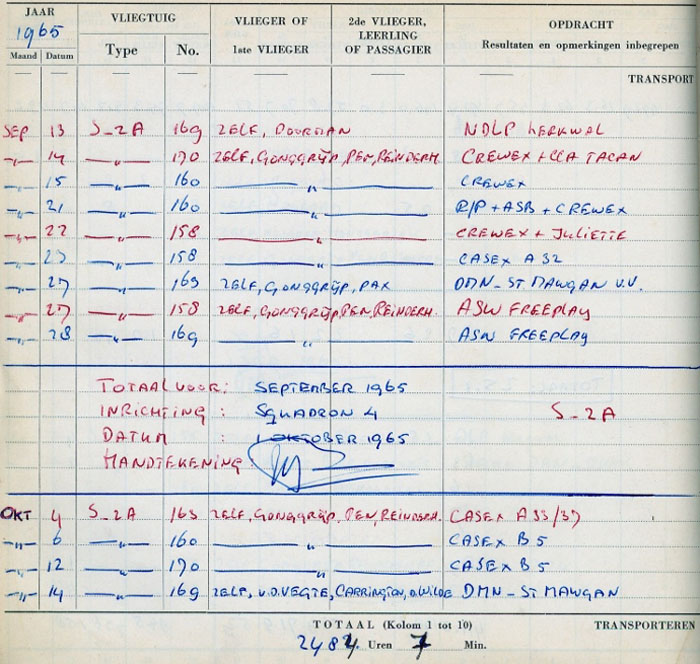 JAAR VLIEGTUIG VLIEGER OF 2de VLIEGER, OPDRACHT
1965 1ste VLIEGER LEERLING Resultaten en opmerkingen inbegrepen
Maand Datum Type No. OF PASSAGIER
TRANSPORT
SEP 13 S-2A 169 ZELF, DOORMAN NDLP LERKWAL
-„- 14 -„- 170 ZELF, GONGGRIJP, PEN, REINDERH. CREWEX + CCA TACAN
-„- 15 -„- 160 -„- CREWEX
-„- 21 -„- 160 -„- R/P + ASB + CREWEX
-„- 22 -„- 158 -„- CREWEX + JULIETTE
-„- 23 -„- 158 -„- CASEX A 32
-„- 27 -„- 169 ZELF, GONGGRIJP, PAX DMN - ST MAWGAN V.V.
-„- 27 -„- 158 ZELF, GONGGRIJP, PEN, REINDERH. ASW FREEPLAY
-„- 28 -„- 169 -„- ASW FREEPLAY
TOTAAL VOOR: SEPTEMBER 1965
INRICHTING : SQUADRON 4 S-2A
DATUM : 1 OKTOBER 1965
HANDTEKENING:
OKT 4 S-2A 163 ZELF, GONGGRIJP, PEN, REINDERH. CASEX A 33/37
-„- 6 -„- 160 -„- CASEX B 5
-„- 12 -„- 170 CASEX B 5
-„- 14 -„- 169 ZELF, V.D.VEGTE, CARRINGTON, D.WILDE DMN - ST MAWGAN
TOTAAL (Kolom 1 tot 10) TRANSPORTEREN
2484 Uren 7 Min.